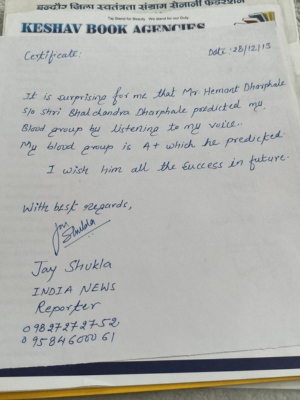 बन्चौर जिला स्वतंत्रता संग्राम सेनानी फेडरेशन
KESHAV BOOK AGENCIES
Certificate:
Date: 28/12/15
It is surprising for me that Mr Hemant Dharphale
s/o Shri Bhalchandra Dharphale predicted my
Blood group by listening to my voice.
My blood group is A+ which he predicted.
I wish him all the Success in future.
With best regards,
Jay
Shukla
Jay Shukla
INDIA NEWS
Reporter
09827272752
09584600061